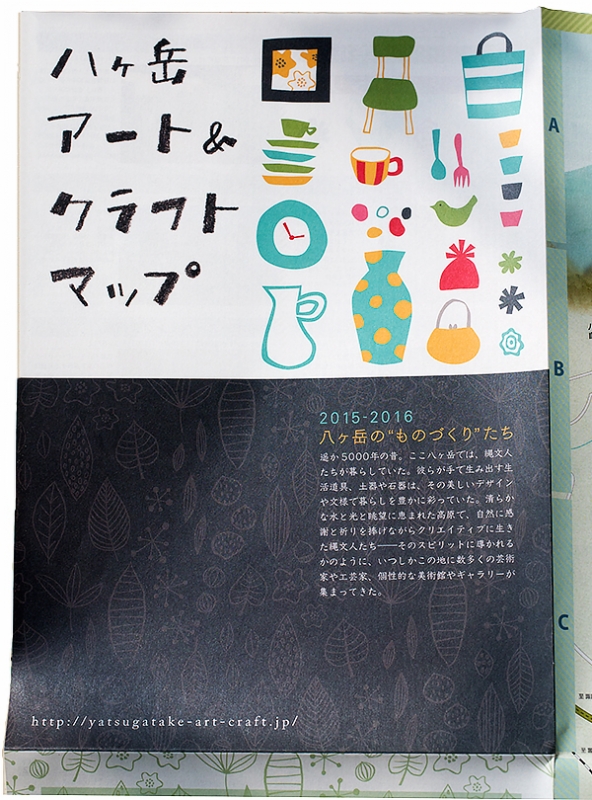 八ヶ岳
アート&
クラフト
マップ
2015-2016
八ヶ岳の“ものづくり”たち
遥か5000年の昔。ここ八ヶ岳では、縄文人
たちが暮らしていた。彼らが手で生み出す生
活道具、土器や石器は、その美しいデザイン
や文様で暮らしを豊かに彩っていた。清らか
な水と光と眺望に恵まれた高原で、自然に感
謝と祈りを捧げながらクリエイティブに生き
た縄文人たち――そのスピリットに導かれる
かのように、いつしかこの地に数多くの芸術
家や工芸家、個性的な美術館やギャラリーが
集まってきた。
http://yatsugatake-art-craft.jp/
A
B
C